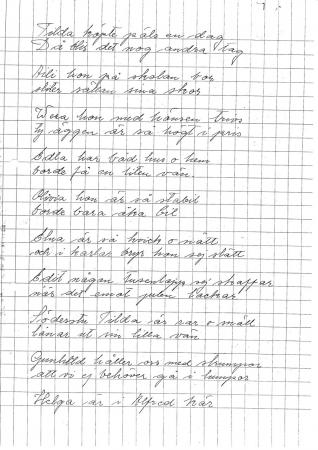 Tilda köpte päls en dag
Då blir det nog andra tag
Aili hon på skolan bor
sina skor
Wera hon med hönsen trivs
ty äggen är så högt i pris
har båd hus o hem
borde få en liten vän.
Olivia hon är så stabil
borde bara åka bil
Elna är så kvick o nätt
och i karlar bryr hon sej slätt
Edit någon tusenlapp sej skaffar
när det emot julen
Tilda är rar o snäll
lånar ut sin lilla vän
Gunhild håller oss med strumpor
att vi ej behöver gå i lumpor
Helga är i Alfred kär